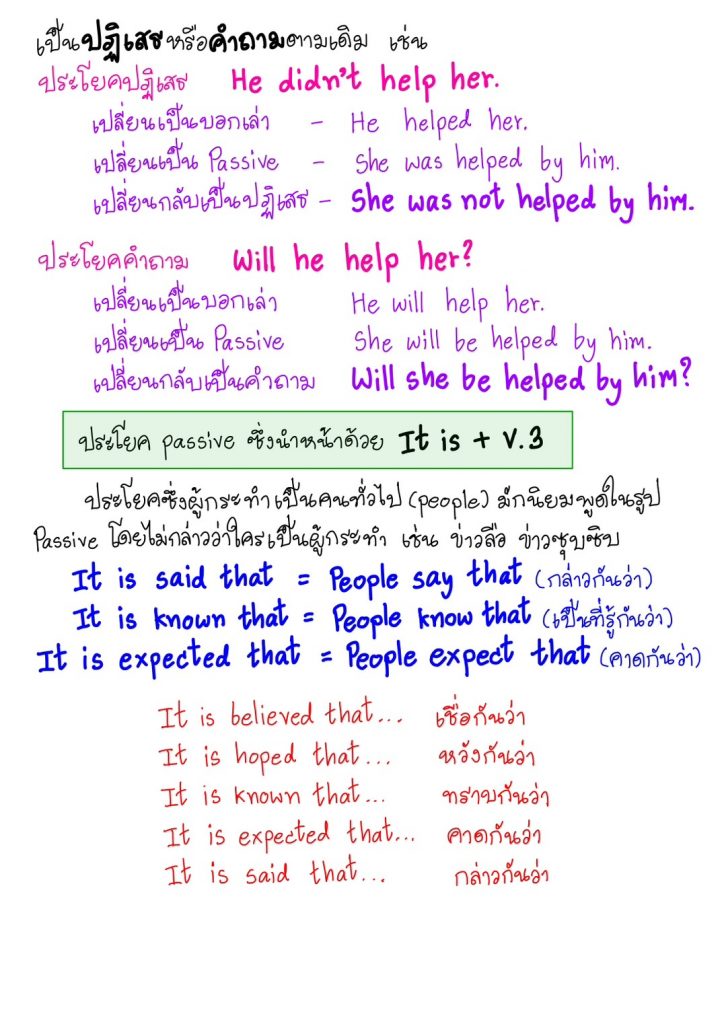 เป็นปฏิเสธหรือคำถามตามเดิม เช่น
ประโยคปฏิเสธ He didn't help her.
เปลี่ยนเป็นบอกเล่า - He helped her.
เปลี่ยนเป็น Passive - She was helped by him.
เปลี่ยนกลับเป็นปฏิเสธ - She was not helped by him.
ประโยคคำถาม Will he help her?
เปลี่ยนเป็นบอกเล่า He will help her.
เปลี่ยนเป็น Passive She will be helped by him.
เปลี่ยนกลับเป็นคำถาม Will she be helped by him?
ประโยค passive ซึ่งนำหน้าด้วย It is + V.3
ประโยคซึ่งผู้กระทำเป็นคนทั่วไป (people) มักนิยมพูดในรูป
Passive โดยไม่กล่าวว่าใครเป็นผู้กระทำ เช่น ข่าวลือ ข่าวซุบซิบ
It is said that = People say that (กล่าวกันว่า)
It is known that = People know that (เป็นที่รู้กันว่า)
It is expected that = People expect that (คาดกันว่า)
It is believed that... เชื่อกันว่า
It is hoped that... หวังกันว่า
It is known that... ทราบกันว่า
It is expected that... คาดกันว่า
It is said that... กล่าวกันว่า